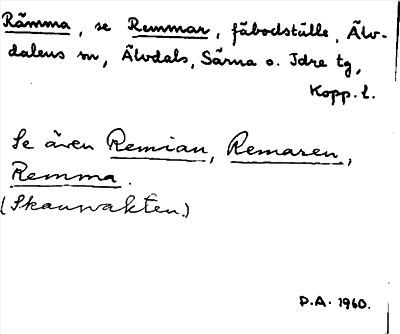 Rämma, se Remmar, fäbodställe, Älv-
dalens sn, Älvdals, Särna o. Idre tg,
Kopp. l.
Se även Remian, Remaren,
Remma.
(Skauvakten.)
P.A. 1960.